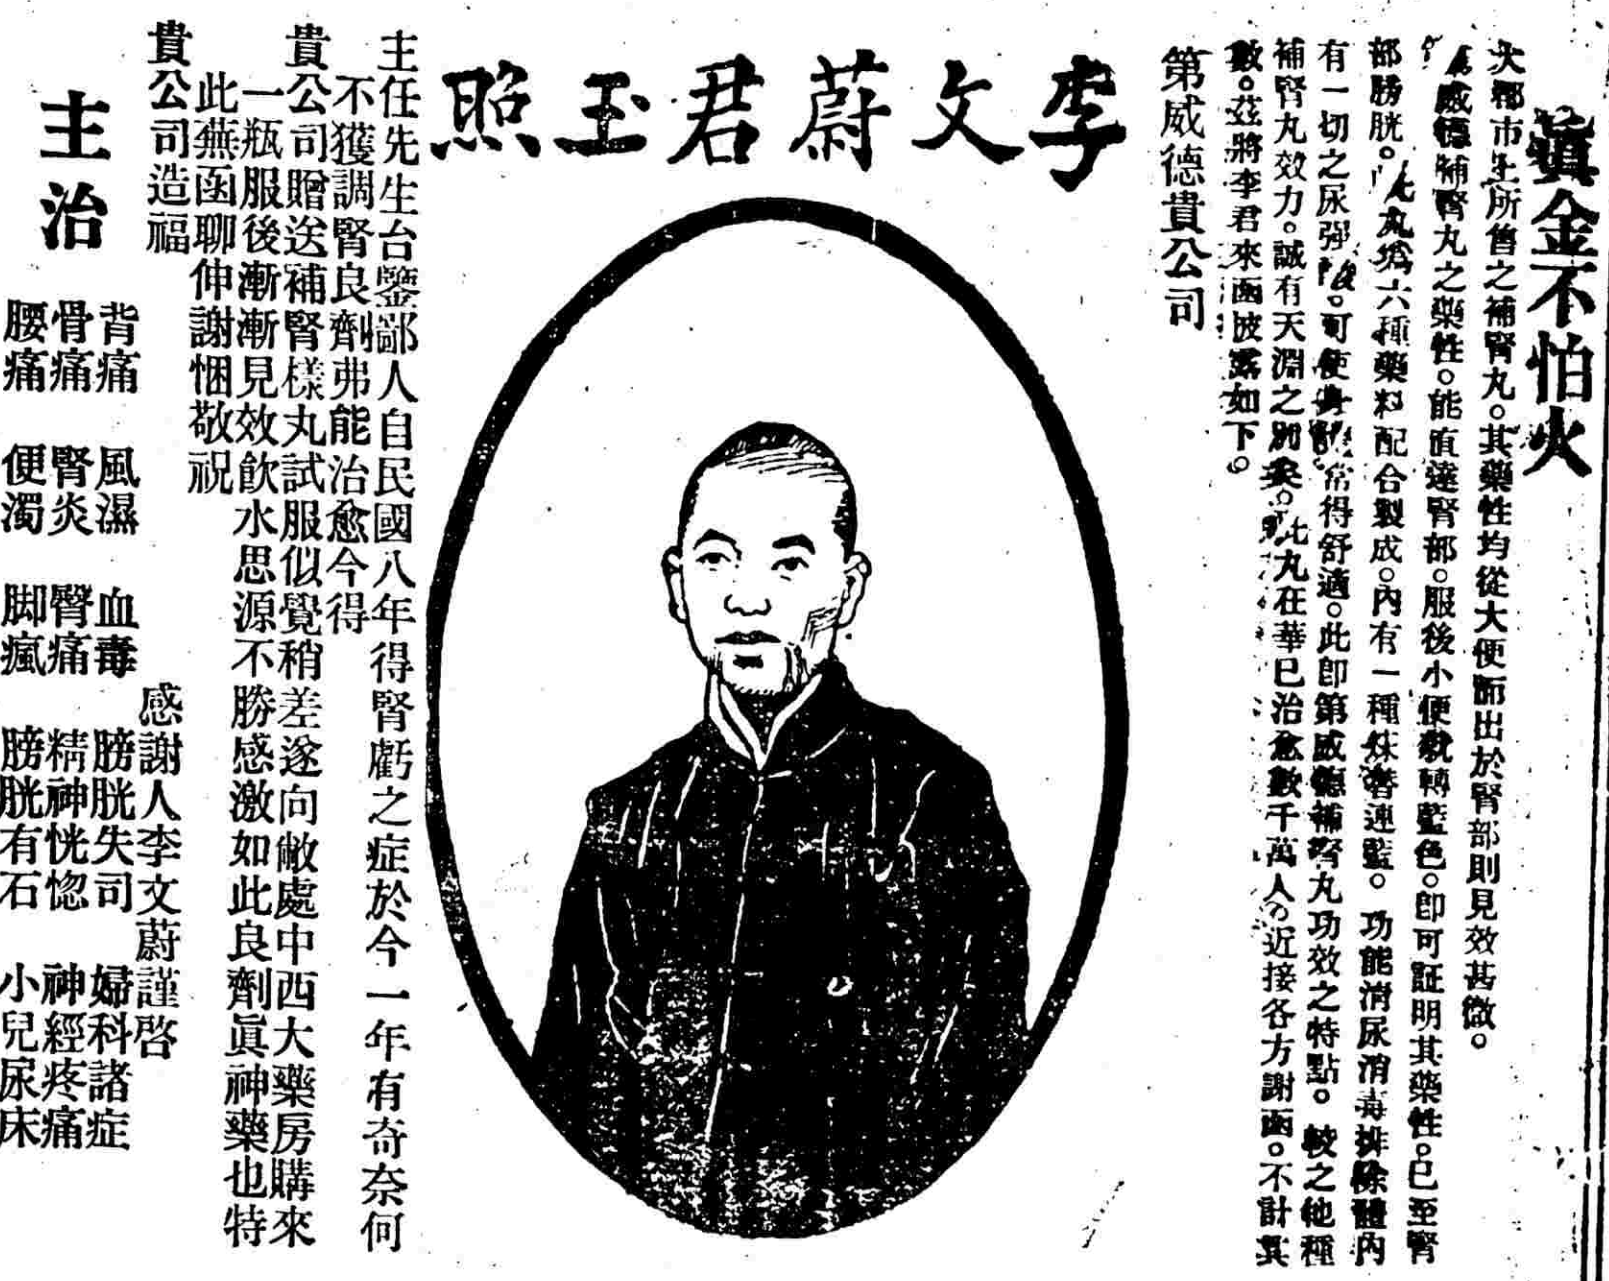 眞金不怕火
大都市上所售之補腎丸。其藥性均從大便而出於腎部則見效甚微。
威德補腎丸之藥性。能直達腎部。服後小便就轉藍色。卽可証明其藥性。已至腎
部膀胱。此丸爲六種藥料配合製成。內有一種 連藍。功能消尿消毒排除體內
有一切之尿 。可使身 常得舒適。此卽第威德補腎丸功效之特點。較之他種
補腎丸效力。誠有天淵之別矣。此丸在華已治愈數千萬人。近接各方謝函。不計其
數。茲將李君來函披露如下。
第威德貴公司
李文蔚君玉照
主任先生台鑒鄙人自民國八年得腎虧之症於今一年有奇奈何
不獲調腎良劑弗能治愈今得
貴公司贈送補腎樣丸試服似覺稍差遂向敝處中西大藥房購來
一瓶服後漸漸見效飲水思源不勝感激如此良劑眞神藥也特
此蕪函聊伸謝悃敬祝
貴公司造福
感謝人李文蔚謹啓
主治
背痛 風濕 血毒 膀胱失司 婦科諸症
骨痛 腎炎 臀痛 精神恍惚 神經疼痛
腰痛 便濁 脚瘋 膀胱有石 小兒尿床